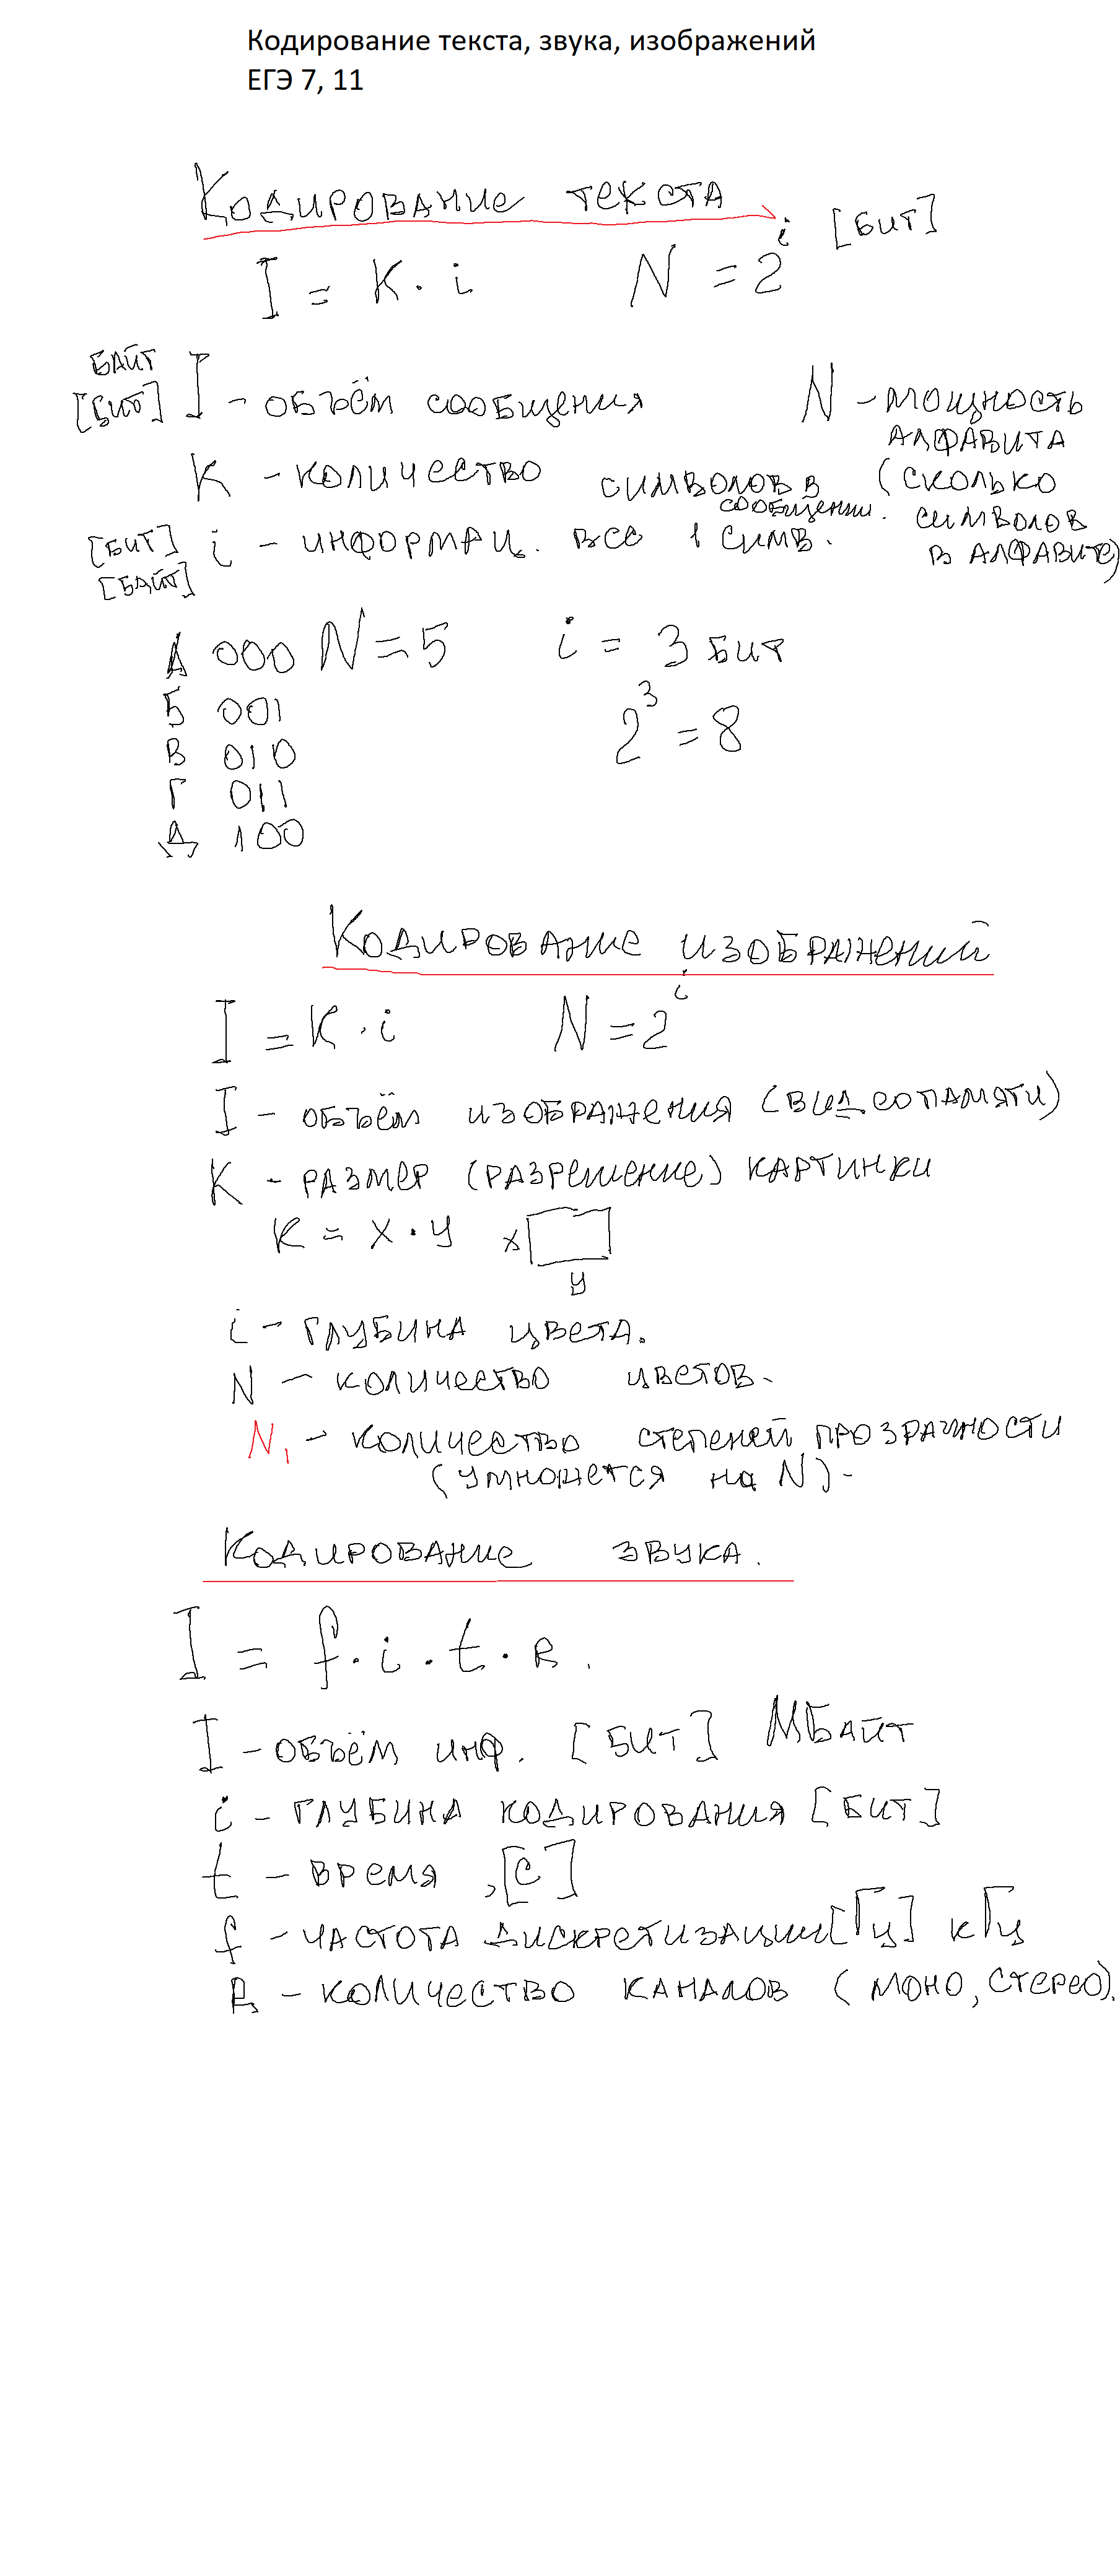 Кодирование текста, звука, изображений
ЕГЭ 7, 11
Кодирование текста
I = K · i N = 2^i [бит]
байт
[бит] I - объём сообщения
N - мощность
алфавита
(сколько
символов
в алфавите)
K - количество символов в
сообщении.
[бит] i - информац. вес 1 симв.
[байт]
А 000 N = 5 i = 3 бит
Б 001 2^3 = 8
В 010
Г 011
Д 100
Кодирование изображений
I = K · i N = 2^i
I - объём изображения (видеопамяти)
K - размер (разрешение) картинки
K = x · y x y
i - глубина цвета.
N - количество цветов.
N1 - количество степеней прозрачности
(умножется на N).
Кодирование звука.
I = f · i · t · R.
I - объём инф. [бит] Мбайт
i - глубина кодирования [бит]
t - время, [с]
f - частота дискретизации [Гц] кГц
R - количество каналов (моно, стерео).